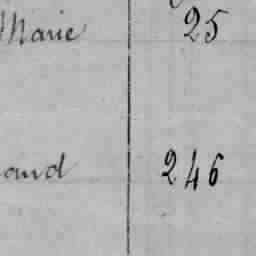 Marie 25
aud 246